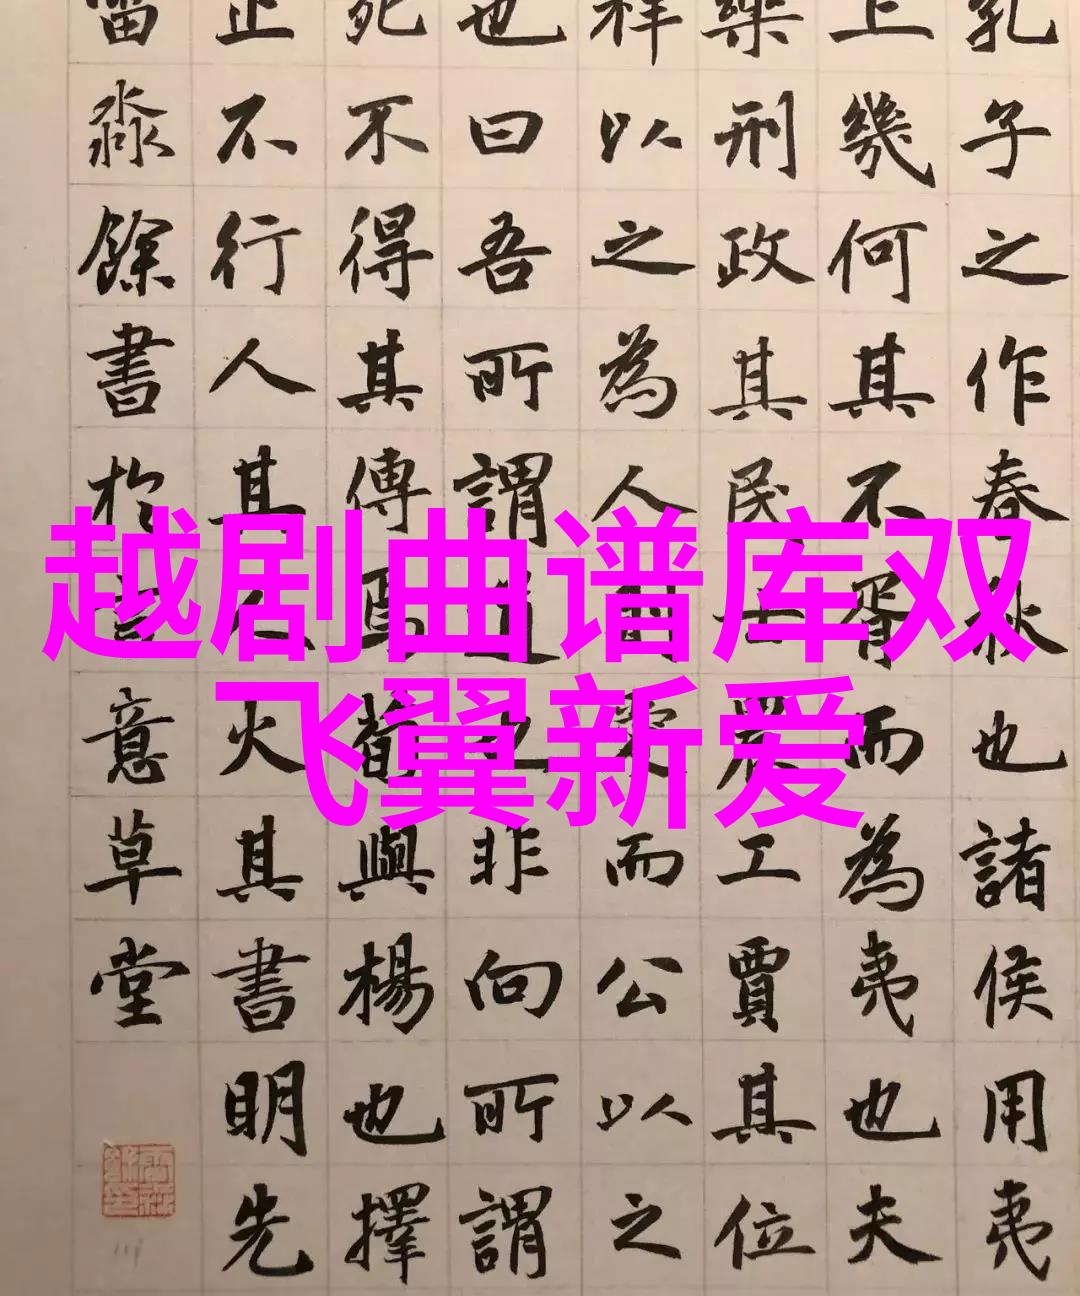 越剧曲谱库双
飞翼新爱
孔子之作春秋也諸侯用夷
上幾何其不胥而為夷也夫
樂刑政其民士農工賈其位
祥以之為人則愛而公以之
也曰吾所謂道也非向所謂
死不得其傳焉荀與楊也擇
止不行人其人火其書明先
淼餘書於意草堂